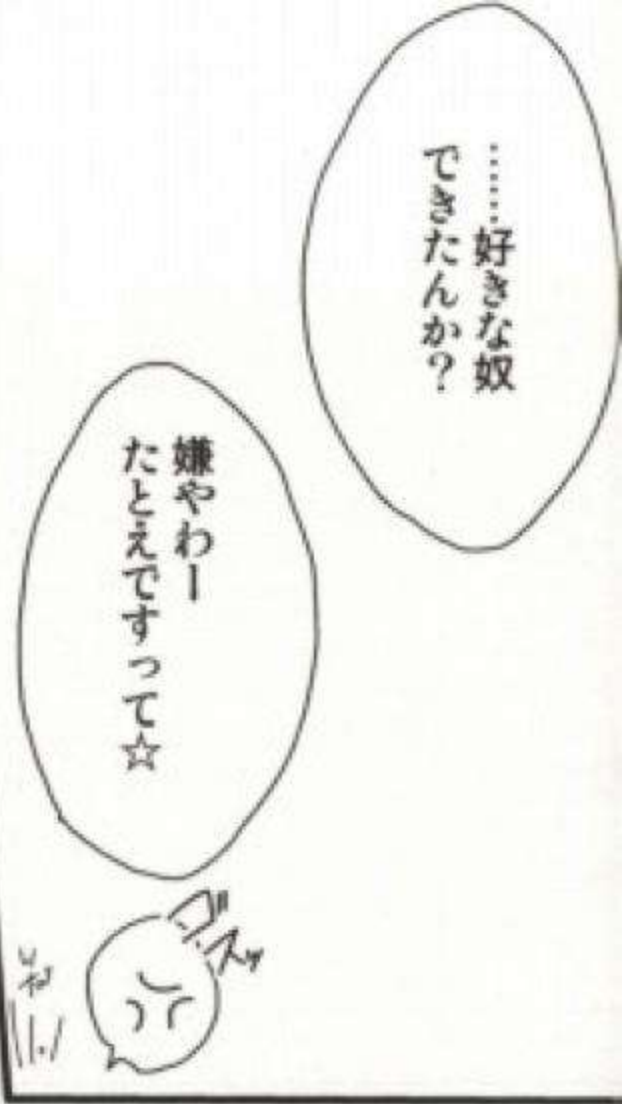 ……好きな奴
できたんか?
嫌やわー
たとえですって☆
ゴスッ